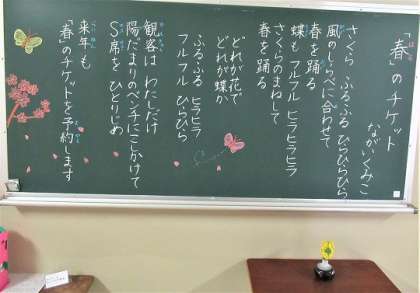 「春」のチケット
ながいくみこ
さくら ふるふる ひらひら
風のしらべに合わせて
春を踊る
蝶も フルフル ヒラヒラヒラ
さくらのまねして
春を踊る
どれが花で
どれが蝶か
ふるふる ヒラヒラ
フルフル ひらひら
観客は わたしだけ
陽だまりのベンチにこしかけて
S席を ひとりじめ
来年も
「春」のチケットを予約します